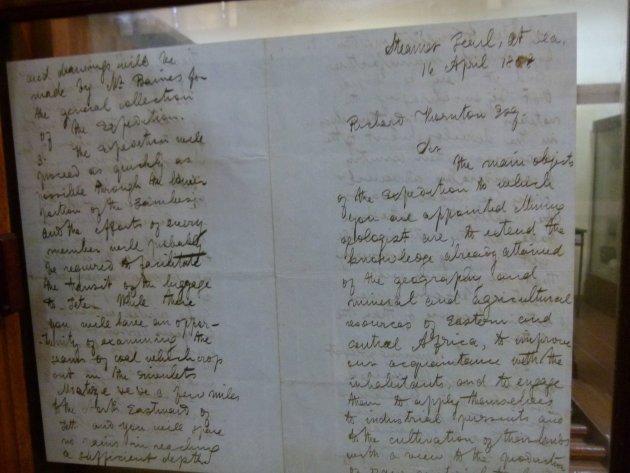 Steamer Pearl, at Sea,
16 April 1858
Richard Thornton Esq
Sir
The main objects
of the Expedition to which
you are appointed Mining
Geologist are, to extend the
knowledge already attained
of the geography and
mineral and Agricultural
resources of Eastern and
Central Africa, to improve
our acquaintance with the
inhabitants, and to engage
them to apply themselves
to industrial pursuits and
to the cultivation of their lands
with a view to the production
and drawings will be
made by Mr Baines for
the general collection
of the Expedition.
3. The Expedition will
proceed as quickly as
possible through the lower
portion of the Zambesi
and the efforts of every
member will probably
be required to facilitate
the transit of the luggage
to Tete. While there
you will have an oppor-
tunity of examining the
seams of coal which crop
out in the rivulets
a few miles
to the North Eastward of
Tete and you will spare
no pains in reaching
a sufficient depth